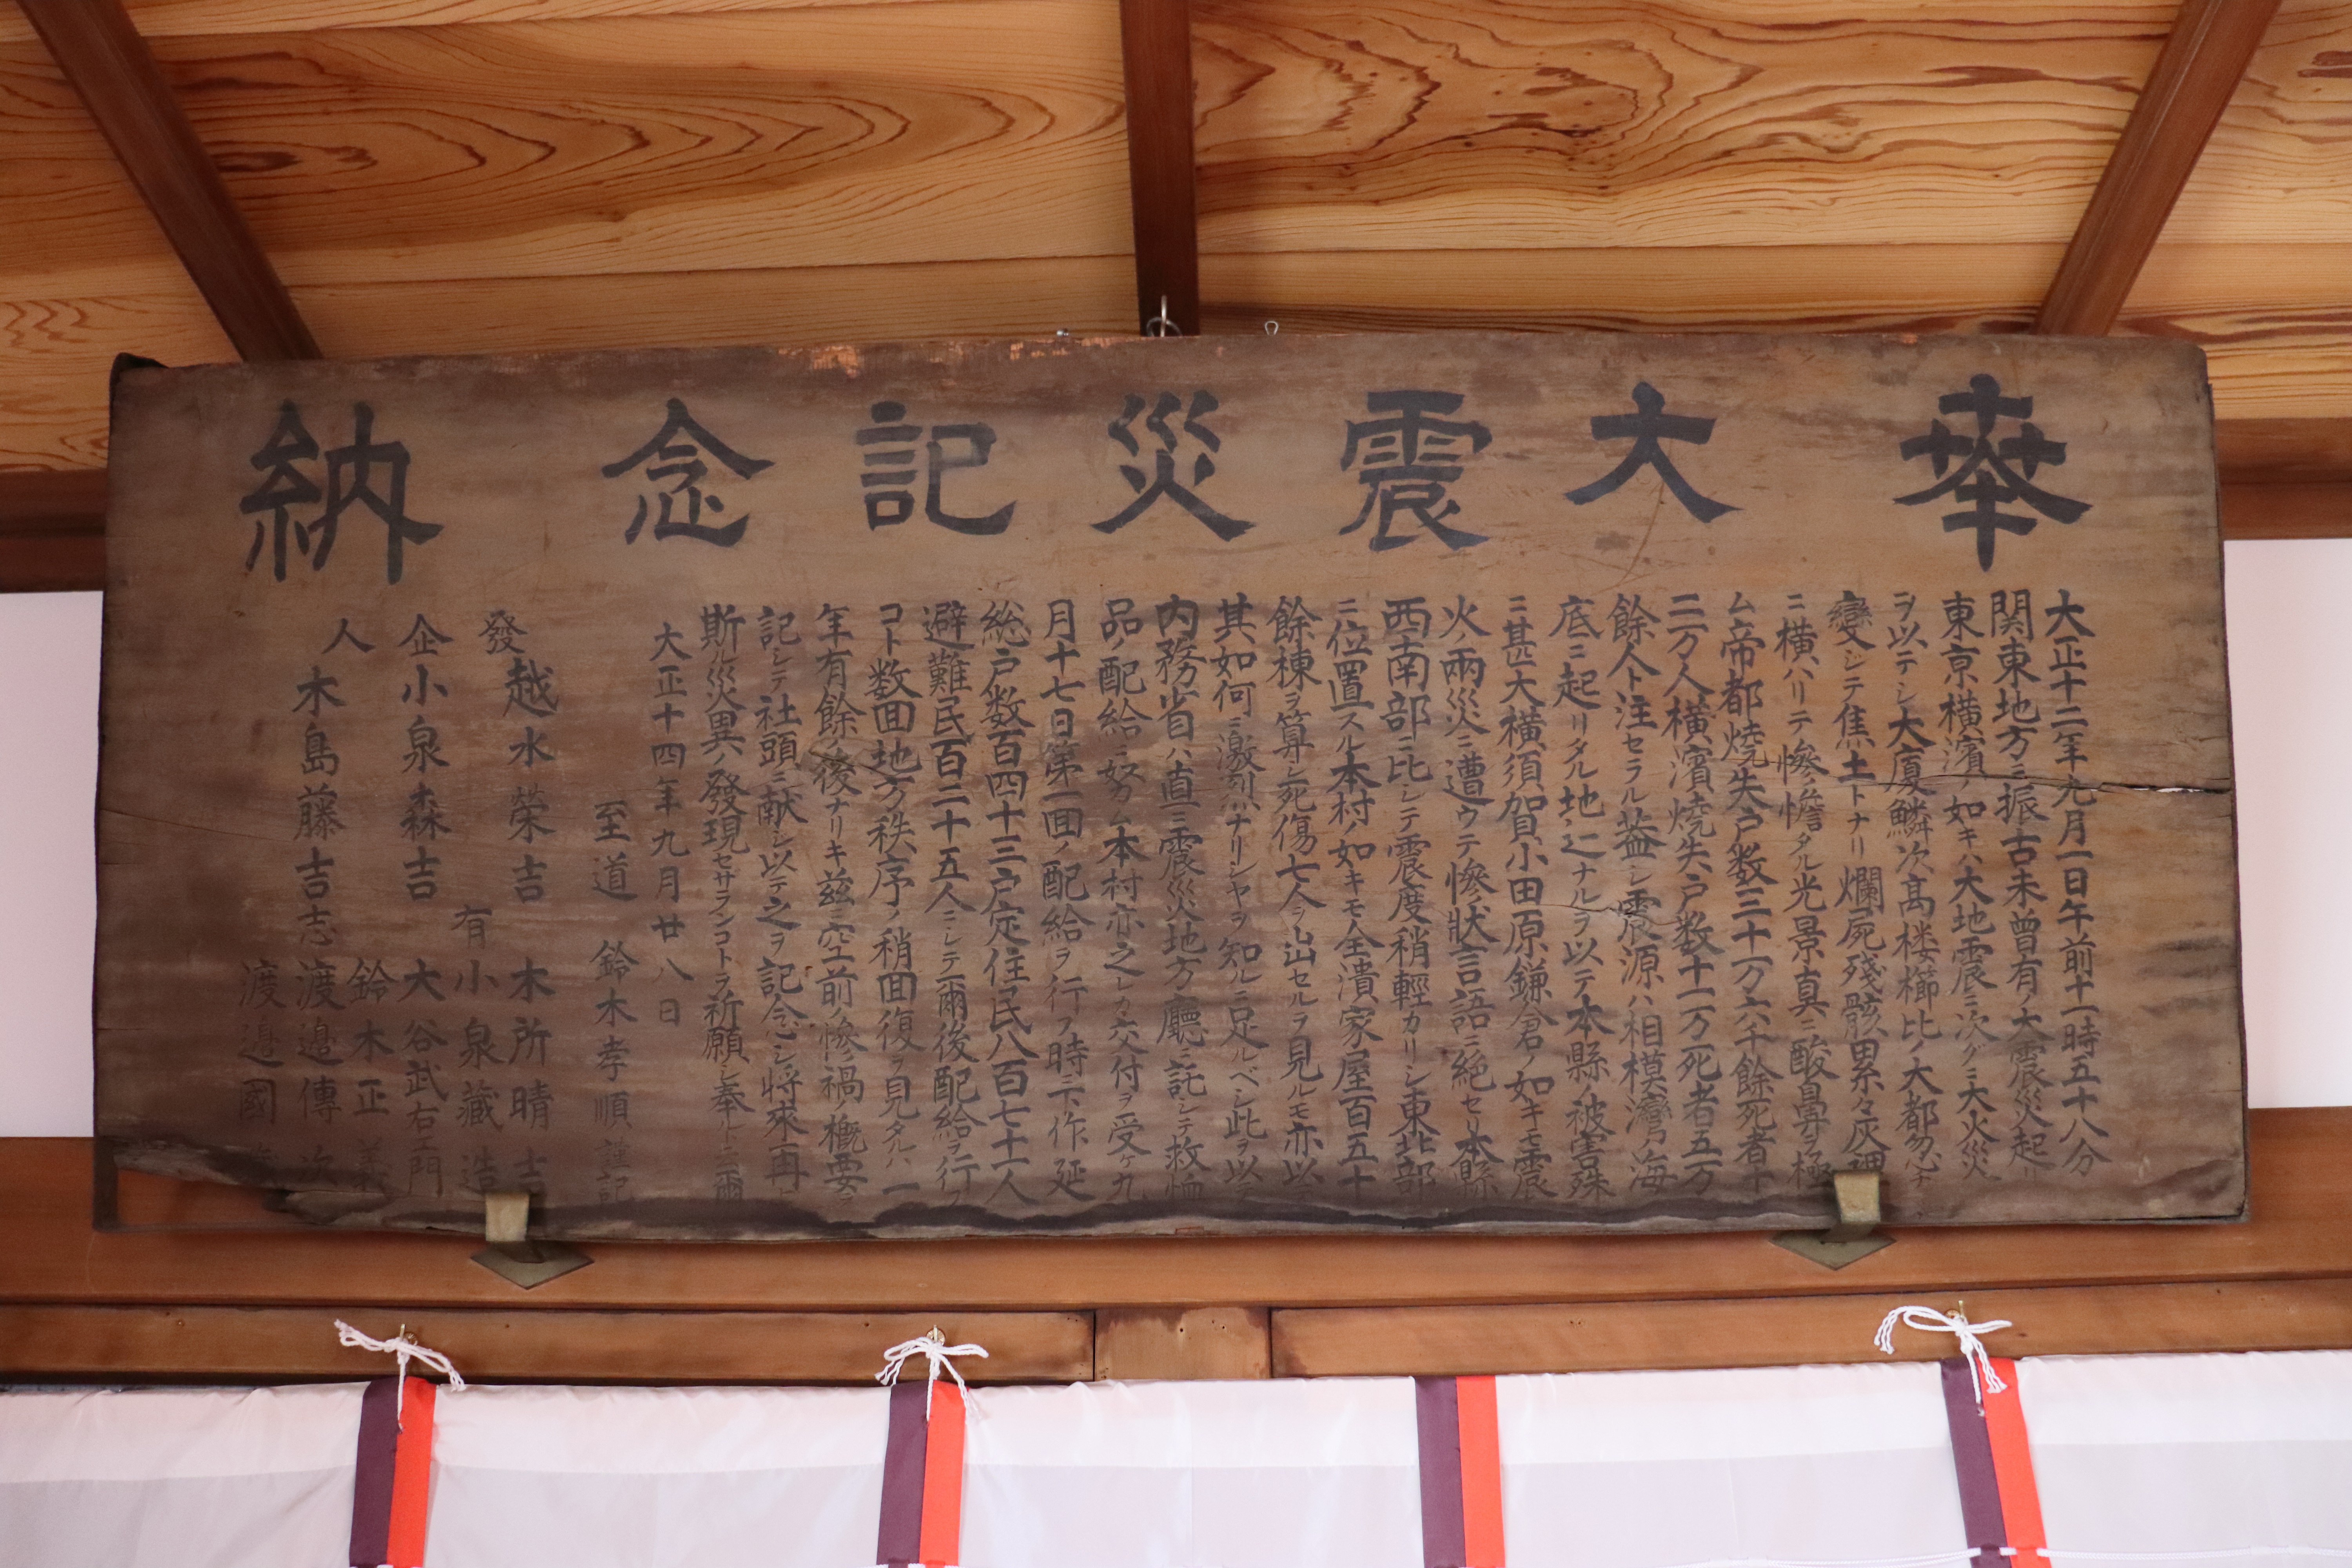 奉 大震災記念 納
大正十二年九月一日午前十一時五十八分
関東地方ニ振古未曾有ノ大震災起リ
東京横濱ノ如キハ大地震ニ次グニ大火災
ヲ以テシ大厦鱗次髙楼櫛比ノ大都忽チ
變シテ焦土トナリ爛屍殘骸累々灰裡
ニ横ハリテ慘憺タル光景真ニ酸鼻ヲ極
ム帝都焼失戸数三十一万六千餘死者十
二万人横濱焼失戸数十一万死者五万
餘人ト注セラル蓋シ震源ハ相模灣ノ海
底ニ起リタル地辷ナルヲ以テ本縣ノ被害殊
ニ甚大横須賀小田原鎌倉ノ如キモ震
火ノ兩災ニ遭ウテ慘状言語ニ絶セリ本縣
西南部ニ比シテ震度稍輕カリシ東北部
ニ位置スル本村ノ如キモ全潰家屋百五十
餘棟ヲ算シ死傷七人ヲ出セルヲ見ルモ亦以テ
其如何ニ激烈ナリシヤヲ知ルニ足ルベシ此ヲ以テ
内務省ハ直ニ震災地方廳ニ託シテ救恤
品ノ配給ニ努ム本村亦之レカ交付ヲ受ケ九
月十七日第一囬ノ配給ヲ行フ時ニ下作延
総戸数百四十三戸定住民八百七十一人
避難民百二十五人ニシテ爾後配給ヲ行フ
コト数囬地方ノ秩序ノ稍囬復ヲ見タルハ一
年有餘ノ後ナリキ茲ニ空前ノ慘禍ノ概要ヲ
記シテ社頭ニ献シ以テ之ヲ記念シ将來再ヒ
斯ル災異ノ發現セサランコトヲ祈願シ奉ルト云爾
大正十四年九月廿八日
至道 鈴木孝順 謹記
發 越水榮吉 木所晴吉
企 小泉森吉 有 小泉藏造
人 木島藤吉 志 大谷武右エ門
鈴木正義
渡邉傳次
渡邉國